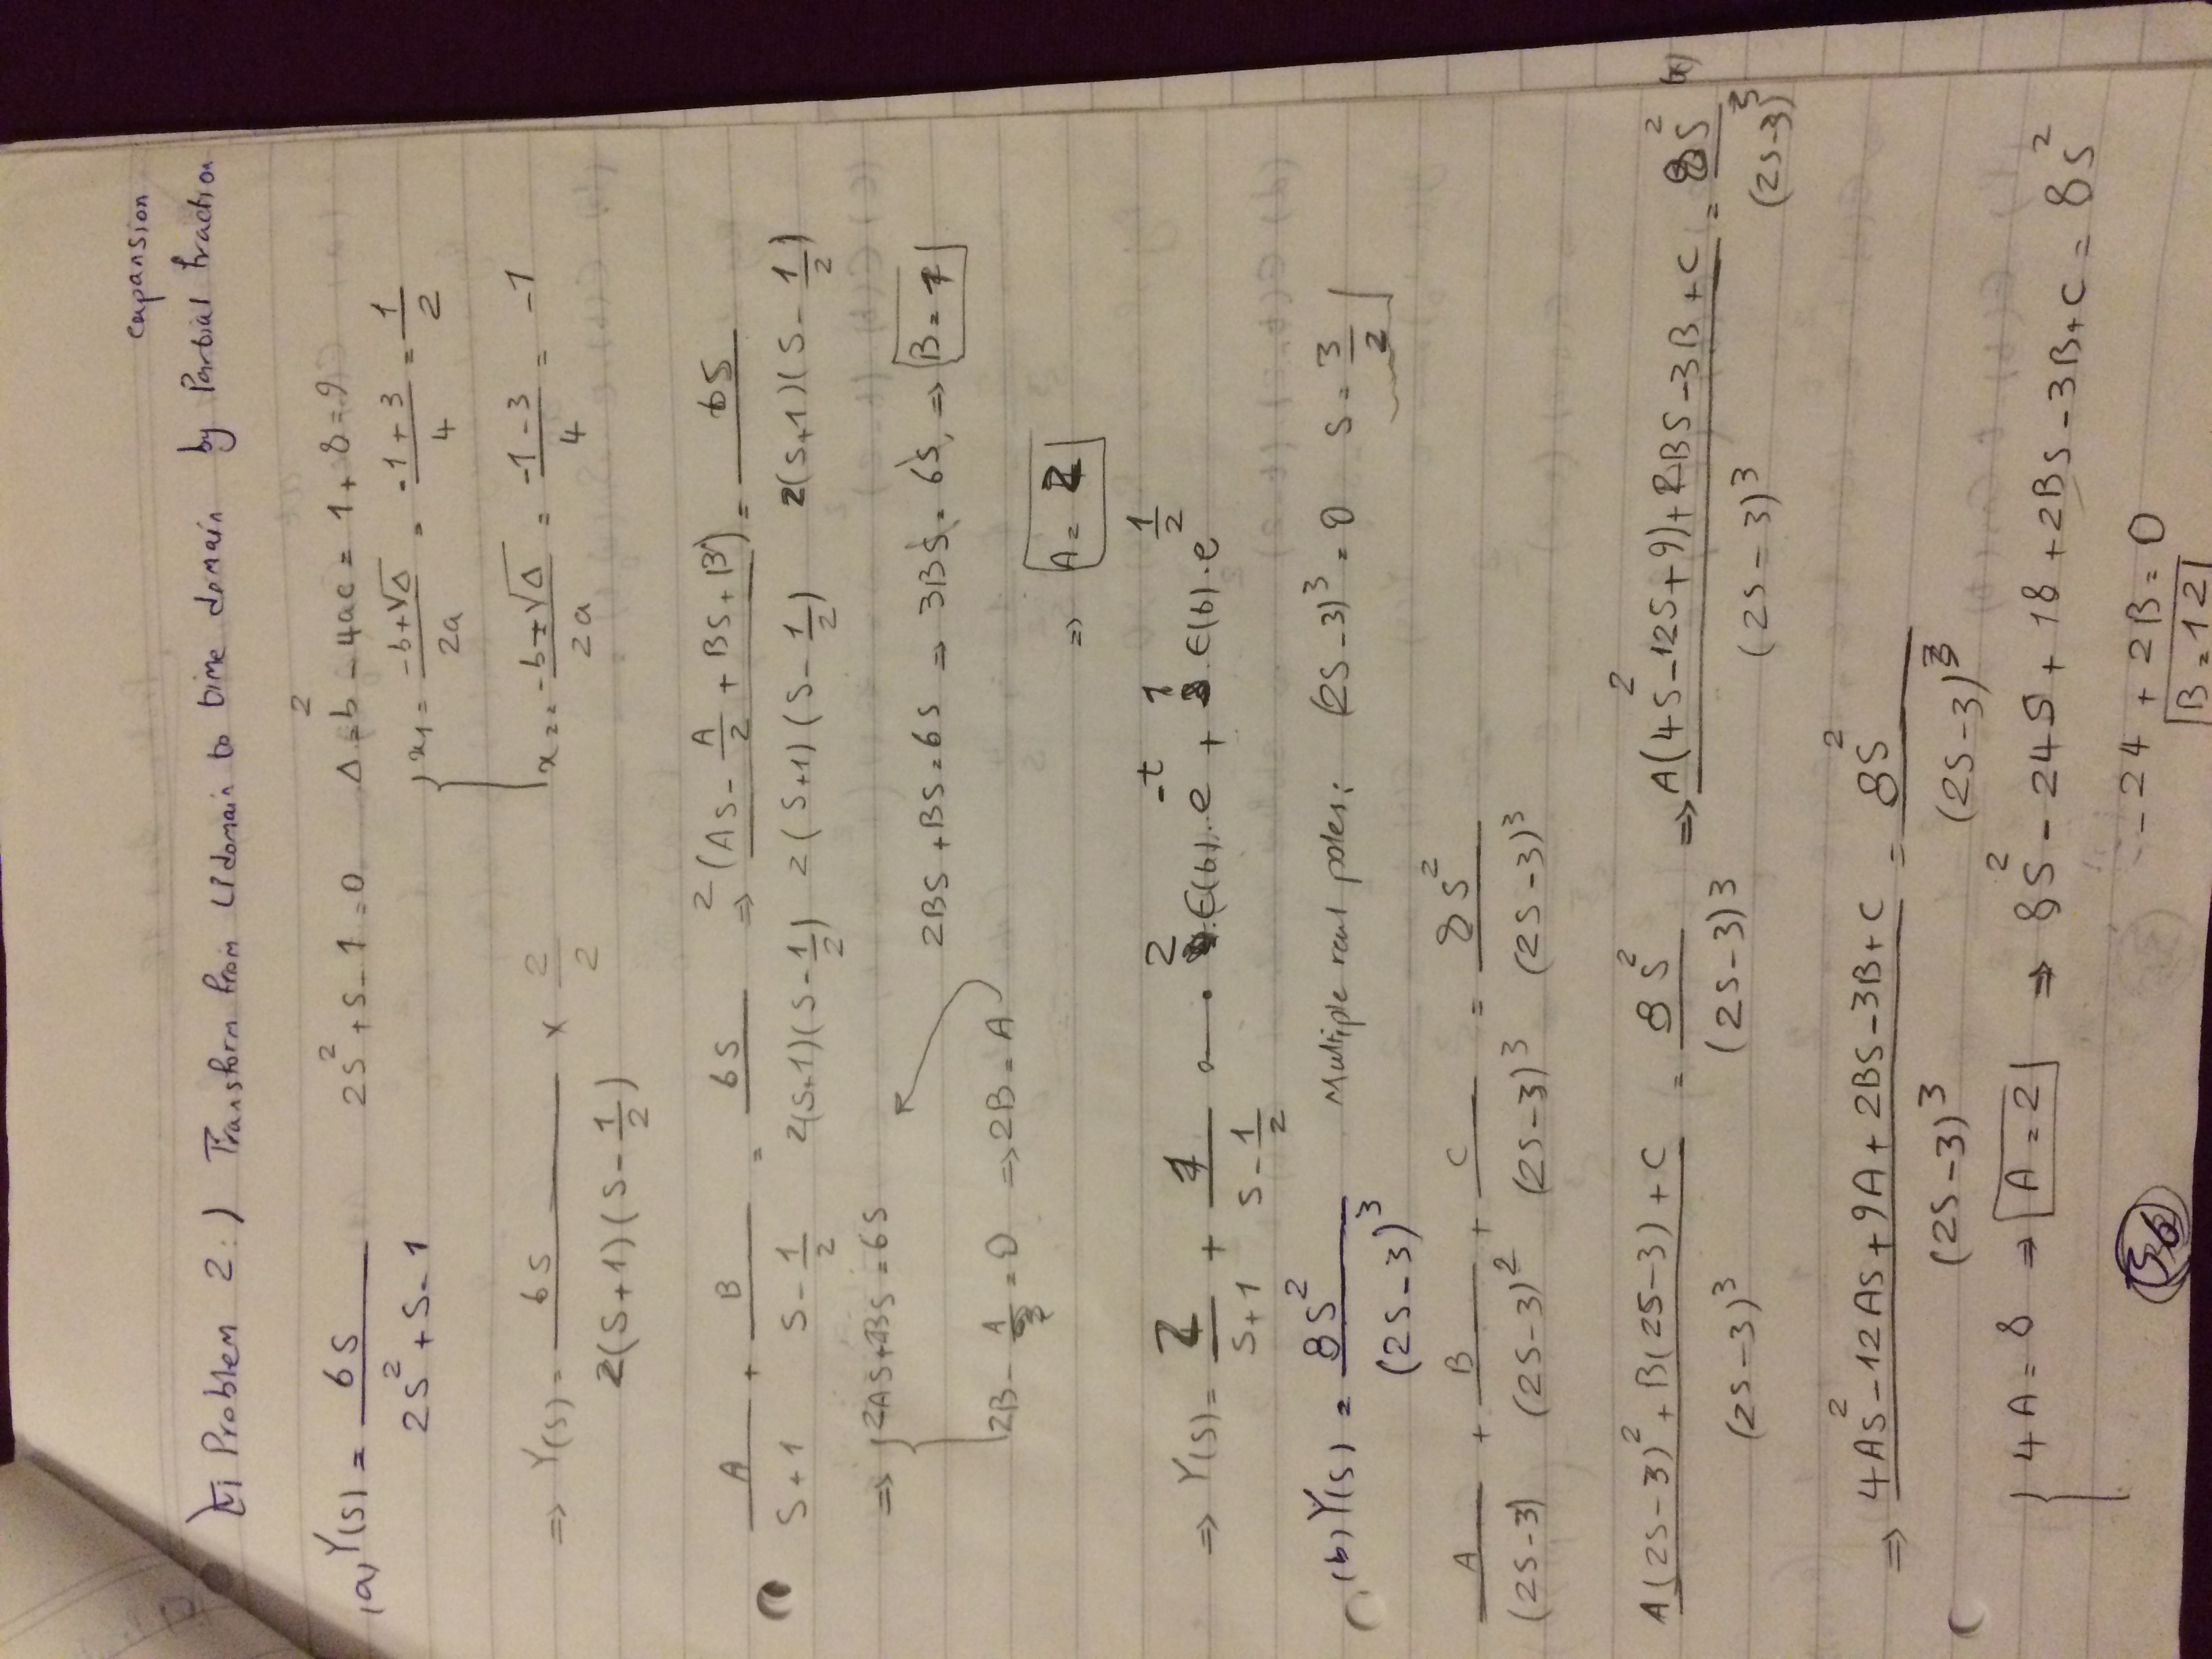 expansion
Problem 2:) Transform from domain to time domain by Partial fraction
(a) Y(s) = 6S / 2S² + S - 1    2S² + S - 1 = 0    Δ = b² - 4ac = 1 + 8 = 9
x1 = -b+√Δ / 2a = -1 + 3 / 4 = 1/2
⇒ Y(s) = 6S / 2(S+1)(S - 1/2) × 2/2    x2 = -b-√Δ / 2a = -1 - 3 / 4 = -1
A / S+1 + B / S - 1/2 = 6S / 2(S+1)(S - 1/2) ⇒ 2(AS - A/2 + BS + B) / 2(S+1)(S - 1/2) = 6S / 2(S+1)(S - 1/2)
⇒ { 2AS + 2BS = 6S
2BS + BS = 6S ⇒ 3BS = 6S ⇒ B = 1
2B - A = 0 ⇒ 2B = A
⇒ A = 2
⇒ Y(s) = 2 / S+1 + 1 / S - 1/2 ○—• 2 . ϵ(t) . e^-t + 1 . ϵ(t) . e^1/2
(b) Y(s) = 8S² / (2S - 3)³    Multiple real poles: (2S - 3)³ = 0    S = 3/2
A / (2S - 3) + B / (2S - 3)² + C / (2S - 3)³ = 8S² / (2S - 3)³
A(2S - 3)² + B(2S - 3) + C / (2S - 3)³ = 8S² / (2S - 3)³ ⇒ A(4S² - 12S + 9) + 2BS - 3B + C / (2S - 3)³ = 8S² / (2S - 3)³
⇒ 4AS² - 12AS + 9A + 2BS - 3B + C / (2S - 3)³ = 8S² / (2S - 3)³
{ 4A = 8 ⇒ A = 2 ⇒ 8S² - 24S + 18 + 2BS - 3B + C = 8S²
- 24 + 2B = 0
56 B = 12